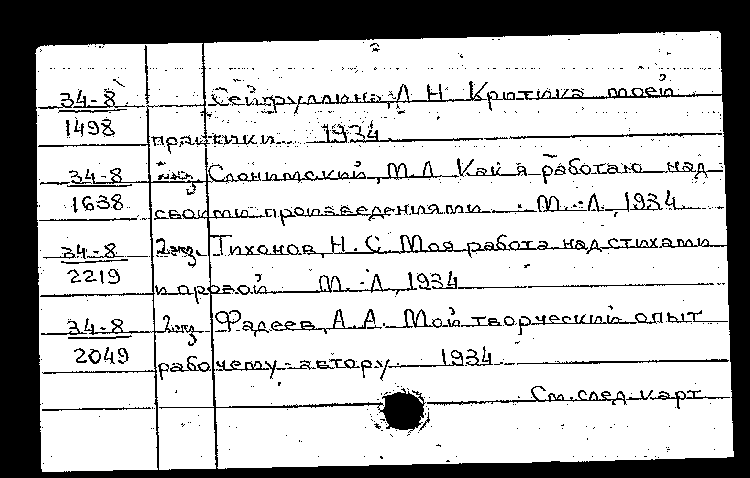 34-8 Сейфуллина, Л. Н. Критика моей
1498 практики 1934
34-8 Слонимский, М. Л. Как я работаю над
1638 своими произведениями. М.-Л., 1934
34-8 2 экз. Тихонов, Н. С. Моя работа над стихами
2219 и прозой М.-Л., 1934
34-8 2 экз. Фадеев, А. А. Мой творческий опыт
2049 рабочему-автору. 1934
См. след. карт.